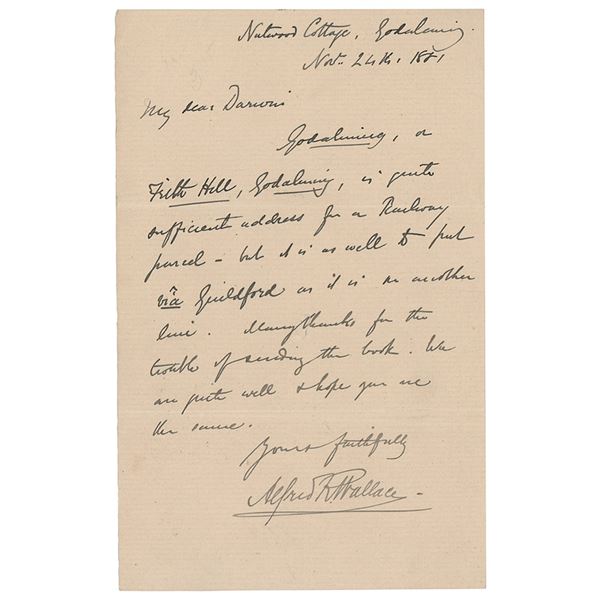 Nutwood Cottage, Godalming.
Nov. 24th. 1881
My dear Darwin
Godalming, or
Frith Hill, Godalming, is quite
sufficient address for a Railway
parcel - but it is as well to put
viâ Guildford as it is on another
line. Many thanks for the
trouble of sending the book. We
are quite well & hope you are
the same.
Yours faithfully
Alfred R. Wallace.